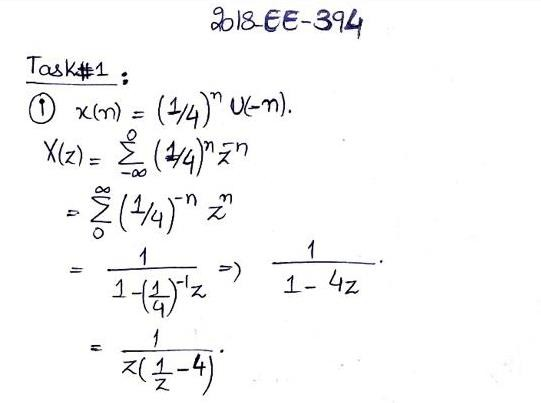 2018-EE-394
Task#1 :
① x(n) = (1/4)^n U(-n).
X(z) = Σ_{-∞}^{0} (1/4)^n z^{-n}
= Σ_{0}^{∞} (1/4)^{-n} z^n
= 1/(1-(1/4)^{-1}z) => 1/(1-4z).
= 1/(z(1/z-4)).